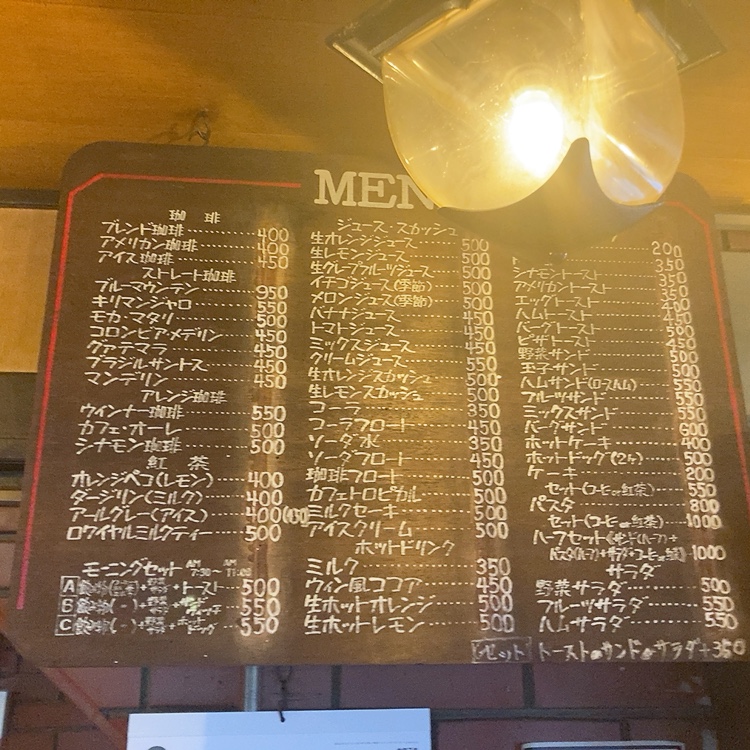 MEN
珈 琲
ブレンド珈琲 400
アメリカン珈琲 400
アイス珈琲 450
ストレート珈琲
ブルーマウンテン 950
キリマンジャロ 550
モカ・マタリ 500
コロンビア・メデリン 450
グァテマラ 450
ブラジルサントス 450
マンデリン 450
アレンジ珈琲
ウィンナー珈琲 550
カフェ・オーレ 500
シナモン珈琲 500
紅 茶
オレンジペコ(レモン) 400
ダージリン(ミルク) 400
アールグレー(アイス) 400
ロワイヤルミルクティー 500
モーニングセット AM 7:30~AM 11:00
A +トースト 500
B 550
C 550
ジュース・スカッシュ
生オレンジジュース 500
生レモンジュース 500
生グレープフルーツジュース 500
イチゴジュース(季節) 500
メロンジュース(季節) 500
バナナジュース 450
トマトジュース 450
ミックスジュース 450
クリームジュース 550
生オレンジスカッシュ 500
生レモンスカッシュ 500
コーラ 350
コーラフロート 450
ソーダ水 350
ソーダフロート 450
珈琲フロート 500
カフェトロピカル 500
ミルクセーキ 500
アイスクリーム 500
ホットドリンク
ミルク 350
ウィン風ココア 450
生ホットオレンジ 500
生ホットレモン 500
200
350
シナモントースト 350
アメリカントースト 350
エッグトースト
ハムトースト 450
バーグトースト 500
ピザトースト 450
野菜サンド 500
玉子サンド 500
ハムサンド(ロースハム) 550
フルーツサンド 550
ミックスサンド 550
バーグサンド 600
ホットケーキ 400
ホットドッグ(2ヶ) 500
ケーキ 200
セット(コーヒーor紅茶) 550
パスタ 800
セット(コーヒーor紅茶) 1000
ハーフセット(サンド(ハーフ)+
パスタ(ハーフ)+サラダ+コーヒーor紅茶) 1000
サラダ
野菜サラダ 500
フルーツサラダ 550
ハムサラダ 550
セット トーストorサンドorサラダ+350